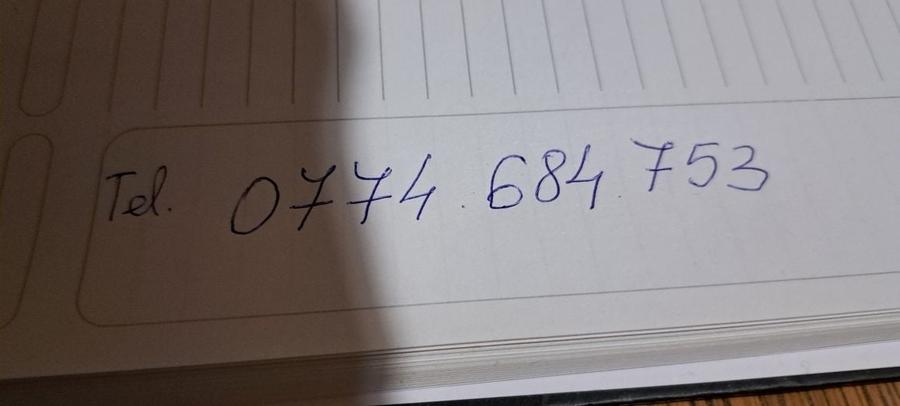 Tel. 0774.684.753